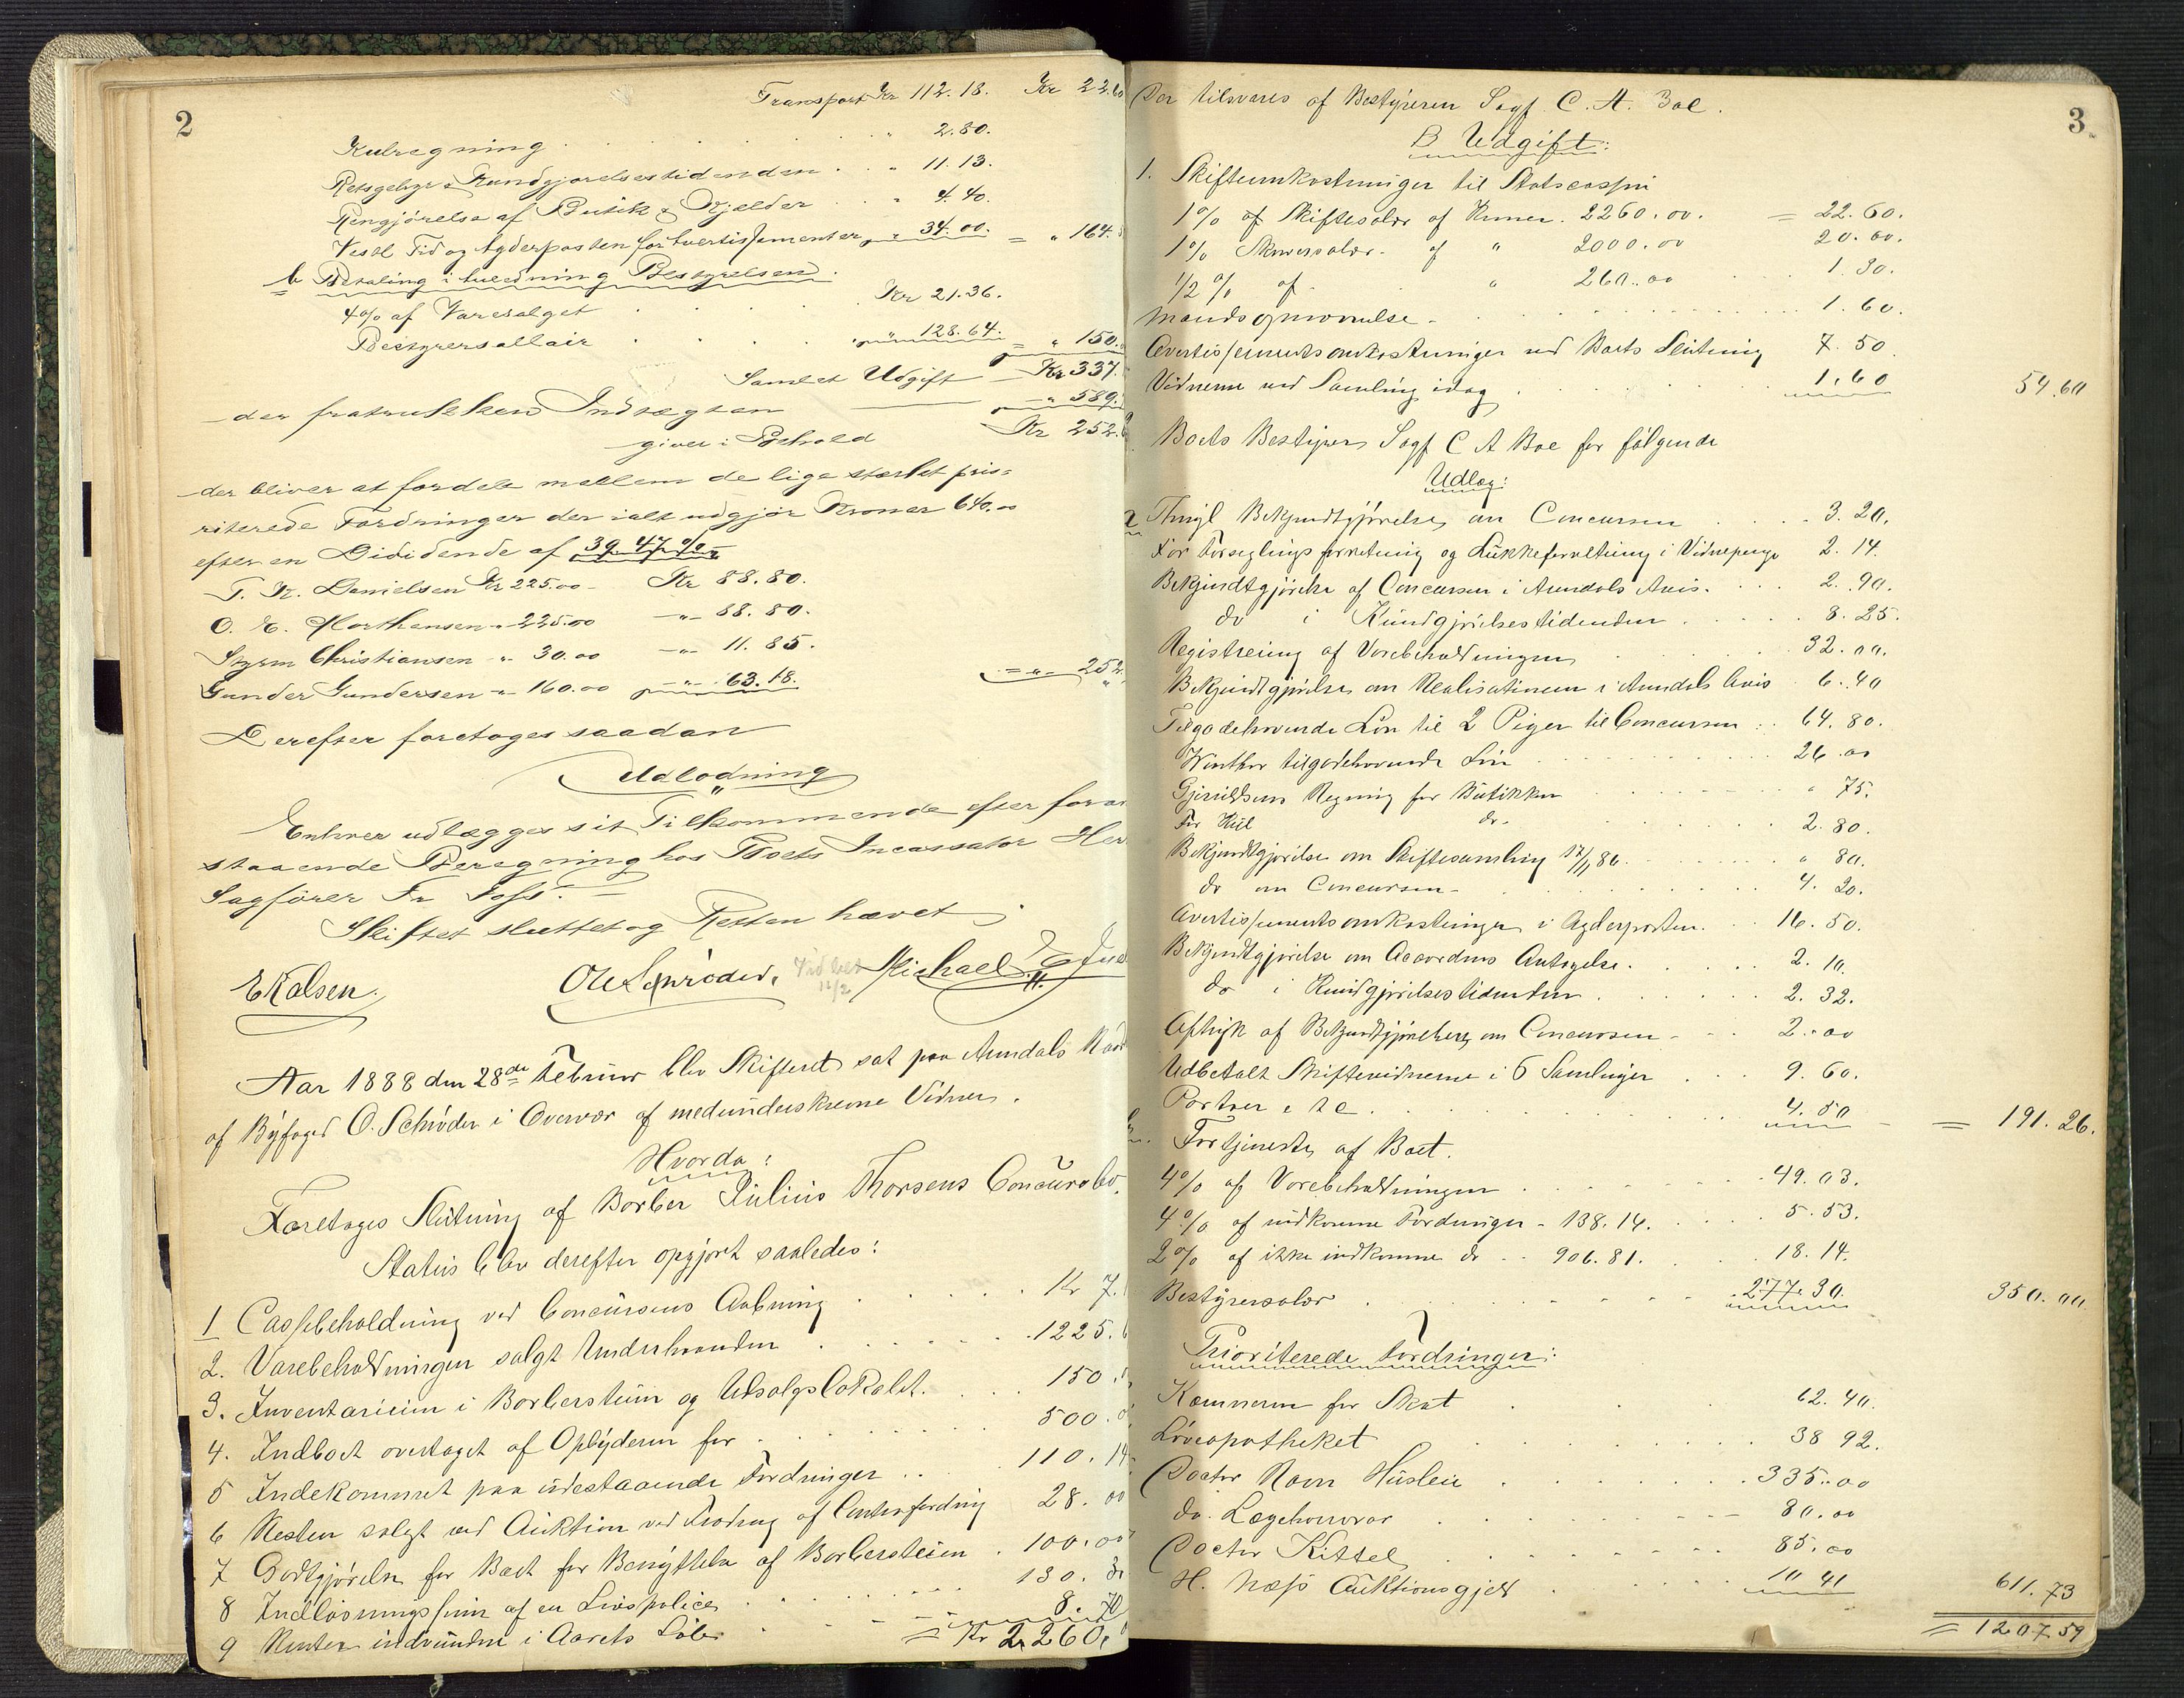 2
Transport Kr 112.13. Kr 22.60
Kulregning " 2.80.
Retsgebyr & Kundgjørelsestidenden " 11.13.
Rengjørelse af Butik & Kjelder " 4.40.
Vestl Tid og Agderposten for Avertissementer " 34.00. = " 164.
b Betaling i Anledning Bestyrelsen.
4% af Varesalget Kr 21.36.
Bestyrersallair " 128.64. = " 150.
Samlet Udgift Kr 337.
der fratrukken Indtægten " 589.
giver i Behold Kr 252.
der bliver at fordele mellem de lige stærkt prio-
riterede Fordringer der ialt udgjør Kroner 640.00
efter en Dividende af 39.47 %
T. Kr. Danielsen Kr 225.00 - Kr 88.80.
O. E. Morthensen - " 225.00 - " - 88.80.
Styrm Christiansen - " 30.00 - " - 11.85.
Gunder Gundersen - " 160.00 - " - 63.18. = " 252.
Derefter foretoges saadan
Udlodning
Enhver udlægges sit Tilkommende efter foran
staaende Beregning hos Boets Incassator Her
Sagfører Fr Foss.
Skiftet sluttet og Retten hævet
E Kalsen. Ole Schrøder. Michael
Aar 1888 den 28de Februar blev Skifteret sat paa Arendals Raad
af Byfoged O. Schrøder i Overvær af medunderskrevne Vidner.
Hvorda:
Foretoges Slutning af Barber Julius Thorsens Concursbo.
Status blev derefter opgjort saaledes:
1 Cassebeholdning ved Concursens Aabning Kr 7.
2. Varebeholdningen solgt Underhaanden 1225.
3. Inventarium i Barberstuen og Udsalgslokalet. 150.
4. Indboet overtaget af Opbyderen for 500.0
5 Indekommet paa udestaaende Fordringer 110.14
6 Resten solgt ved Auktion ved Fradrag af Contrafordring 28.00
7 Godtgjørelse for Boet for Benyttelse af Barberstuen 100.00
8 Indløsningssum af en Livspolice 130.
9 Renter indvundne i Aarets Løb 8.70
= Kr 2260.
3.
Der tilsvares af Bestyreren Sagf. C. A. Boe.
B Udgift:
1. Skifteomkostninger til Statscassen
1% af Skiftesalær af Kroner. 2260.00. = 22.60.
1% Skriversalær. af " 2000.00 20.00.
1/2 % af " 260.00 1.30.
Mandsopnævnelse - 1.60.
Avertissementsomkostninger ved Boets Slutning 7.50
Vidnerne ved Samling idag 1.60 54.60
Boets Bestyrer Sagf C A Boe for følgende
Udlæg:
2 Thingl Bekjendtgjørelse om Concursen 3.20.
For Forseglingsforretning og Lukkeforvaltning i Vidnepenge 2.14.
Bekjendtgjørelse af Concursen i Arendals Avis. 2.90.
do i Kundgjørelsestidenden 8.25.
Registrering af Varebeholdningen 32.00.
Bekjendtgjørelse om Realisationen i Arendals Avis 6.40
Tilgodehavende Løn til 2 Piger til Concursen 64.80.
Winther tilgodehavende Løn 26.00
Regning for Butikken " 75.
For Kul do. 2.80.
Bekjendtgjørelse om Skiftesamling 17/11 86. " 80.
do om Concursen - 4.20.
Avertissementsomkostninger i Agderposten. 16.50.
Bekjendtgjørelse om Accordens Antagelse. 2.10.
do i Kundgjørelsestidenden 2.32.
Aftryk af Bekjendtgjørelsen om Concursen - 2.00
Udbetalt Skiftevidnerne i 6 Samlinger 9.60.
Portoer etc. 4.50 = 191.26.
b. Fortjeneste af Boet.
4% af Varebeholdningen 49.03.
4% af indkomne Fordringer - 138.14. 5.53.
2% af ikke indkomne do - - 906.81. 18.14.
Bestyrersalær 277.30. 350.00.
Prioriterede Fordringer:
Kæmneren for Skat 62.40.
Løveapotheket 38 92.
Doctor Ravn Husleie 335.00
do. Lægehonorar 80.00
Doctor Kittel 85.00
H. Næss Auktionsgjeld 10 41 611.73
= 1207.59